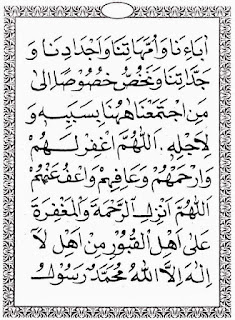 اٰبَاءِنَا وَاُمَّهَاتِنَا وَاَجْدَادِنَا وَ
جَدَّاتِنَا وَنَخُصُّ خُصُوْصًا اِلَى
مَنِ اجْتَمَعْنَا هٰهُنَا بِسَبَبِهِ وَ
لِاَجْلِهِ. اَللّٰهُمَّ اغْفِرْ لَهُمْ
وَارْحَمْهُمْ وَعَافِهِمْ وَاعْفُ عَنْهُمْ
اَللّٰهُمَّ اَنْزِلِ الرَّحْمَةَ وَالْمَغْفِرَةَ
عَلٰى اَهْلِ الْقُبُوْرِ مِنْ اَهْلِ لَآ
اِلٰهَ اِلَّا اللّٰهُ مُحَمَّدٌ رَسُوْلُ